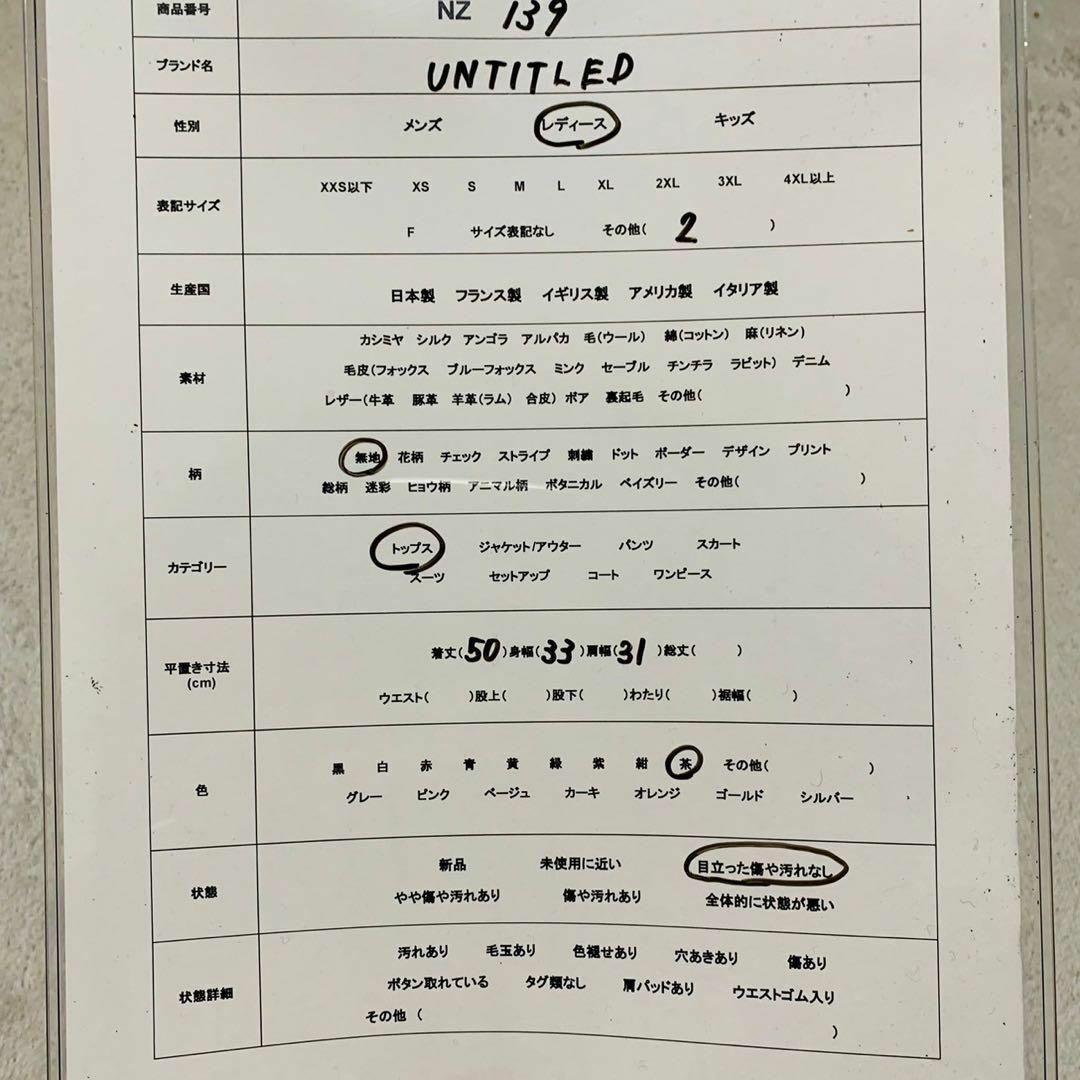 商品番号 NZ 139
ブランド名 UNTITLED
性別 メンズ レディース キッズ
XXS以下 XS S M L XL 2XL 3XL 4XL以上
表記サイズ
F サイズ表記なし その他( 2 )
生産国 日本製 フランス製 イギリス製 アメリカ製 イタリア製
カシミヤ シルク アンゴラ アルパカ 毛(ウール) 綿(コットン) 麻(リネン)
素材 毛皮(フォックス ブルーフォックス ミンク セーブル チンチラ ラビット) デニム
レザー(牛革 豚革 羊革(ラム) 合皮) ボア 裏起毛 その他( )
柄 無地 花柄 チェック ストライプ 刺繍 ドット ボーダー デザイン プリント
総柄 迷彩 ヒョウ柄 アニマル柄 ボタニカル ペイズリー その他( )
カテゴリー トップス ジャケット/アウター パンツ スカート
スーツ セットアップ コート ワンピース
平置き寸法 着丈(50)身幅(33)肩幅(31)総丈( )
(cm) ウエスト( )股上( )股下( )わたり( )裾幅( )
色 黒 白 赤 青 黄 緑 紫 紺 茶 その他( )
グレー ピンク ベージュ カーキ オレンジ ゴールド シルバー
状態 新品 未使用に近い 目立った傷や汚れなし
やや傷や汚れあり 傷や汚れあり 全体的に状態が悪い
汚れあり 毛玉あり 色褪せあり 穴あきあり 傷あり
状態詳細 ボタン取れている タグ類なし 肩パッドあり ウエストゴム入り
その他 ( )